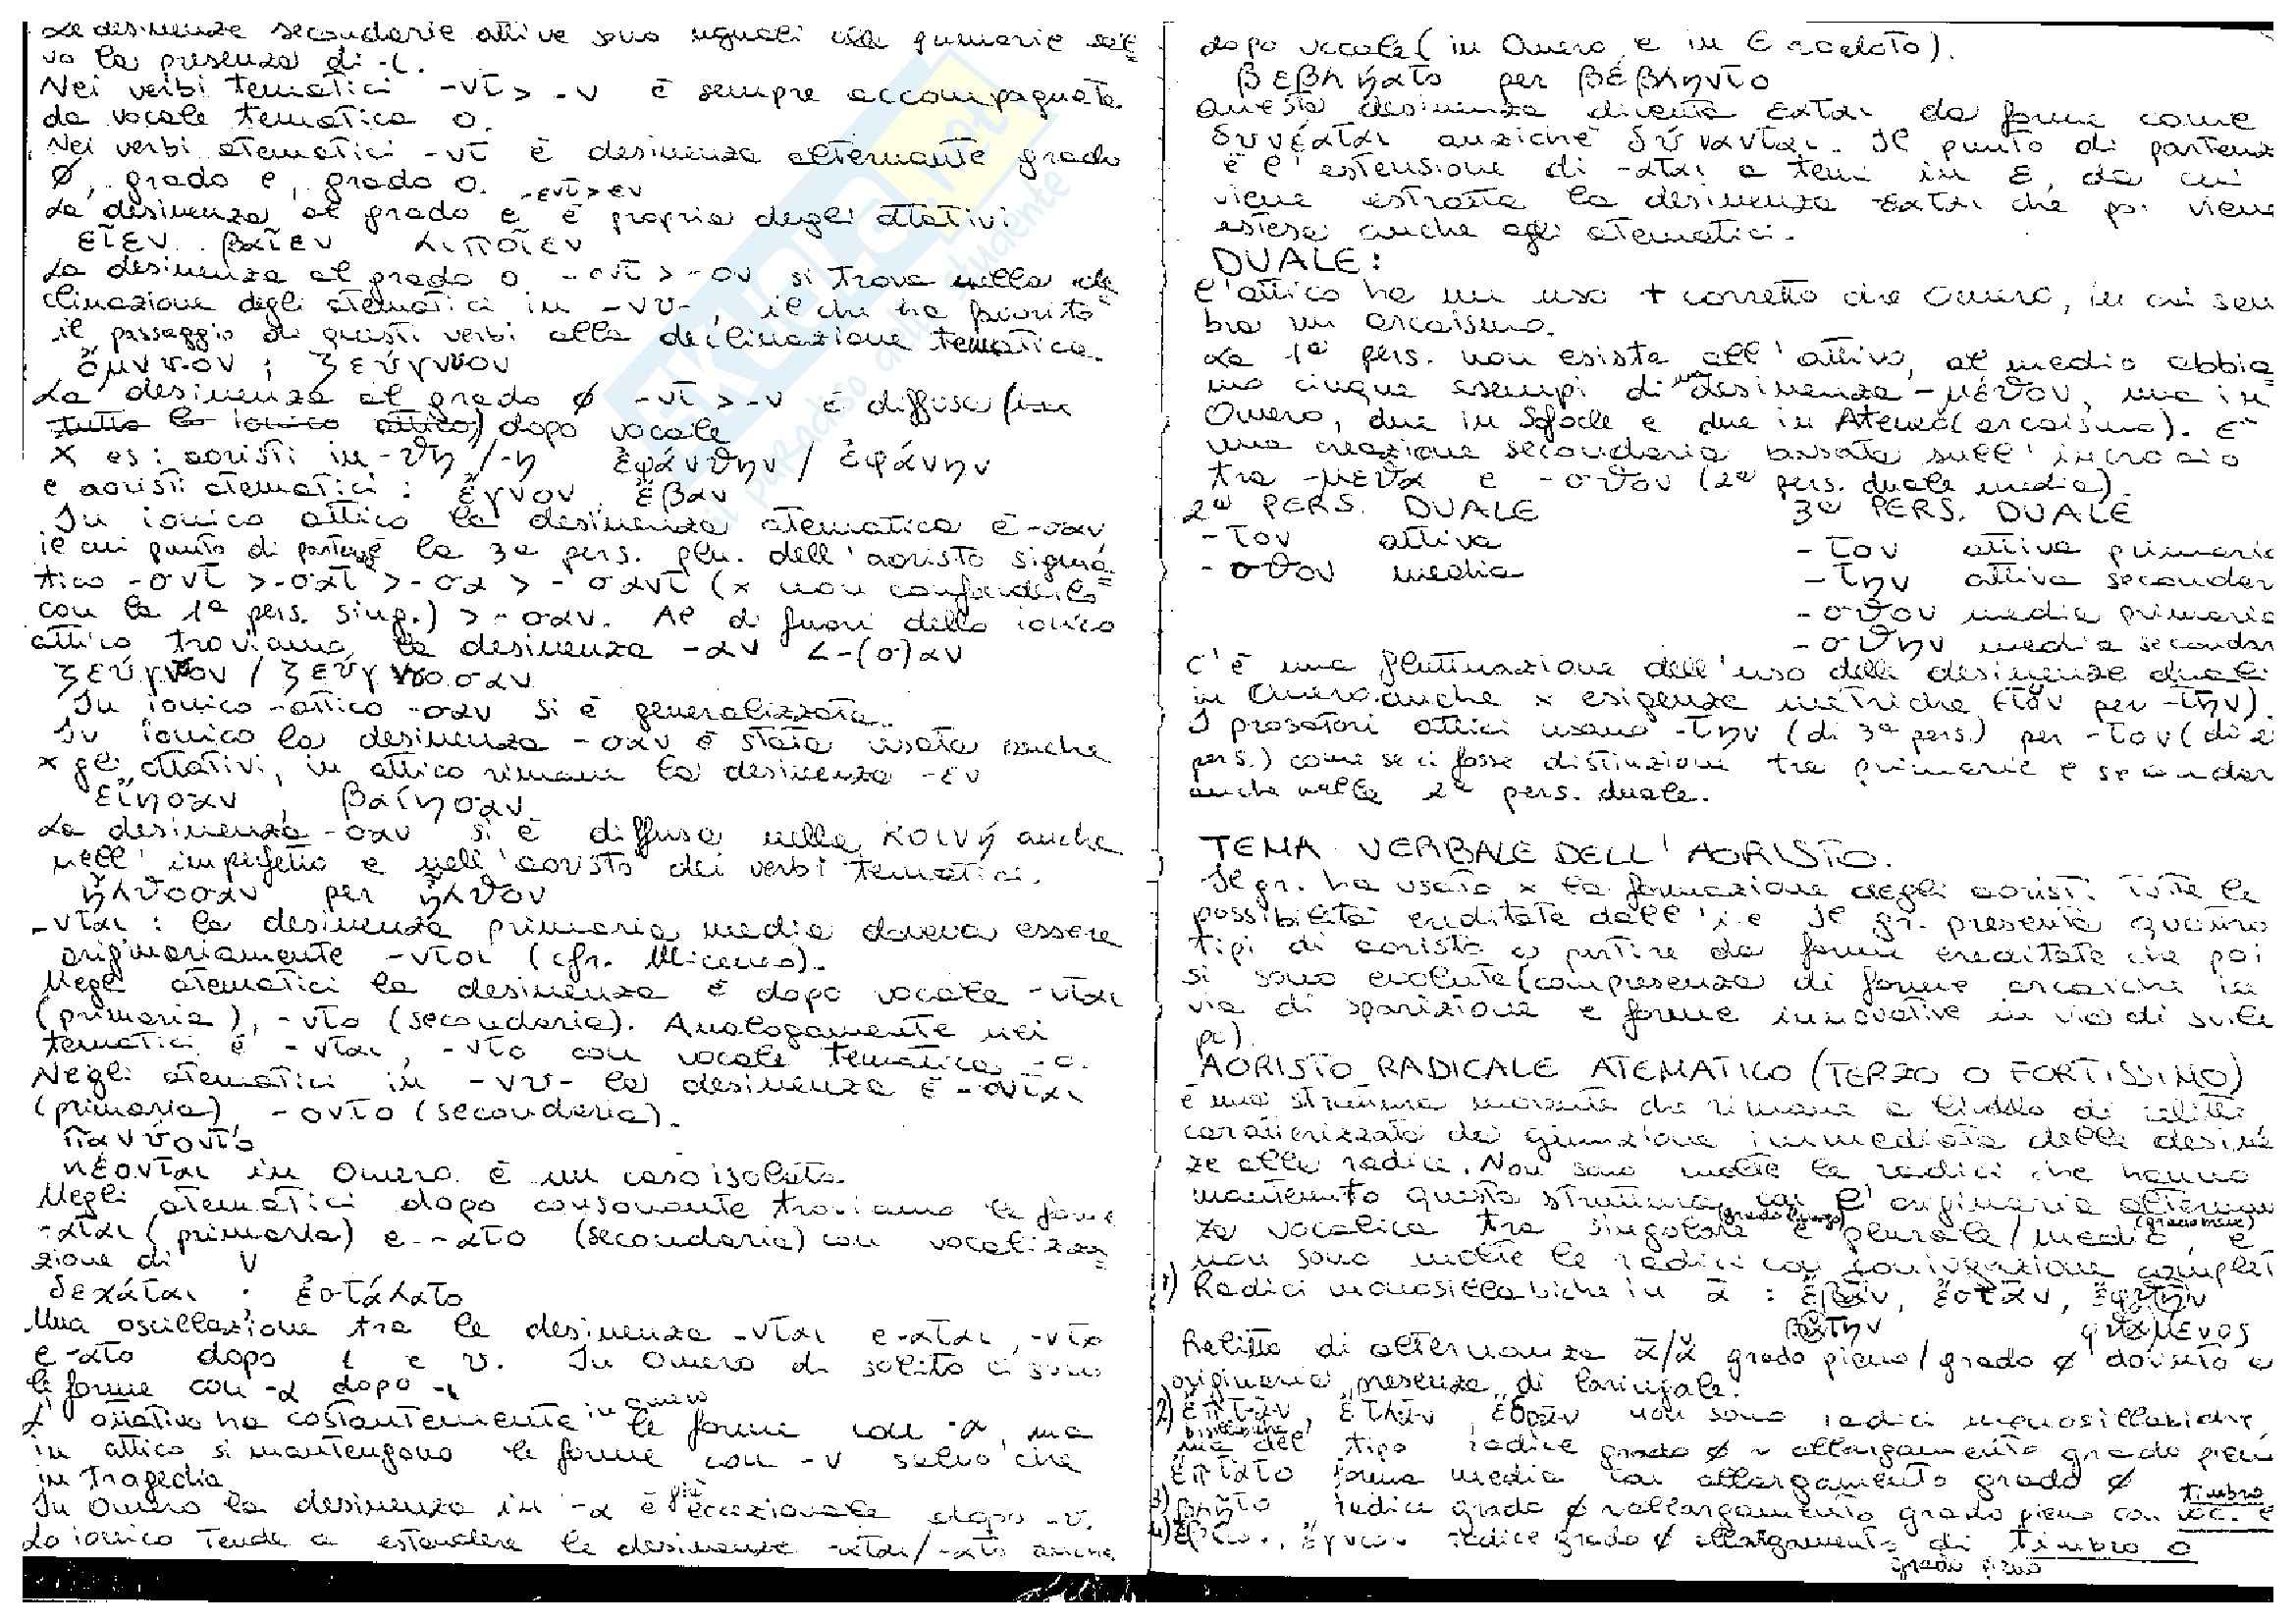 Le desinenze secondarie attive sono uguali alle primarie sal=
vo la presenza di -ι.
Nei verbi tematici -ντ > -ν è sempre accompagnata
da vocale tematica o.
Nei verbi atematici -ντ è desinenza alternante grado
Ø, grado e, grado o. -εντ>εν
La desinenza al grado e è propria degli ottativi
εἶεν βαῖεν λιποῖεν
La desinenza al grado o -οντ > -ον si trova nella de
clinazione degli atematici in -νυ-, il che ha favorito
il passaggio di questi verbi alla declinazione tematica.
ὄμνυον ; ζεύγνυον
La desinenza al grado Ø -ντ > -ν è diffusa
dopo vocale
x es: aoristi in -θη/-η ἐφάνθην / ἐφάνην
e aoristi atematici: ἔγνον ἔβαν
In ionico attico la desinenza atematica è -σαν
il cui punto di partenza è la 3ª pers. plu. dell'aoristo sigma=
tico -σντ > -σατ > -σα > -σαντ (x non confonderlo
con la 1ª pers. sing.) > -σαν. Al di fuori dello ionico
attico troviamo la desinenza -αν <-(σ)αν
ζεύγνυον / ζεύγνυσαν
In ionico-attico -σαν si è generalizzata.
In ionico la desinenza -σαν è stata usata anche
x gli ottativi, in attico rimane la desinenza -εν
εἴησαν , βαίησαν
La desinenza -σαν si è diffusa nella κοινή anche
nell'imperfetto e nell'aoristo dei verbi tematici.
ἤλθοσαν per ἦλθον
-νται: la desinenza primaria media doveva essere
originariamente -ντοι (cfr. Miceneo).
Negli atematici la desinenza è dopo vocale -νται
(primaria), -ντο (secondaria). Analogamente nei
tematici è -νται, -ντο con vocale tematica -ο.
Negli atematici in -νυ- la desinenza è -ονται
(primaria) -οντο (secondaria).
τανύοντο
νέονται in Omero è un caso isolato.
Negli atematici dopo consonante troviamo le forme
-αται (primaria) e -ατο (secondaria) con vocalizza=
zione di ν
δεχάται · ἐστάλατο
Una oscillazione tra le desinenza -νται e -αται, -ντο
e -ατο dopo ι e υ. In Omero di solito ci sono
le forme con -α dopo -ι
L'ottativo ha costantemente in Omero le forme con -α, ma
in attico si mantengono le forme con -ν salvo che
in tragedia
In Omero la desinenza in -α è più eccezionale dopo -υ.
Lo ionico tende a estendere le desinenze -αται/-ατο anche
dopo vocale (in Omero e in Erodoto).
βεβλήατο per βέβληντο
Questa desinenza diventa εαται da forme come
δυνέαται anziché δύνανται. Il punto di partenza
è l'estensione di -αται a temi in ε, da cui
viene estratta la desinenza -εαται che poi viene
estesa anche agli atematici.
DUALE:
L'attico ha un uso + corretto che Omero, in cui sem
bra un arcaismo.
La 1ª pers. non esiste all'attivo, al medio abbia=
mo cinque esempi di una desinenza -μέθον, una in
Omero, due in Sofocle e due in Ateneo (arcaismo). È
una creazione secondaria basata sull'incrocio
tra -μεθα e -σθον (2ª pers. duale media).
2ª PERS. DUALE 3ª PERS. DUALE
-τον attiva -τον attiva primaria
-σθον media -την attiva secondar
-σθον media primaria
-σθην media secondar
C'è una fluttuazione dell'uso delle desinenze duali
in Omero anche x esigenze metriche (-τον per -την).
I prosatori attici usano -την (di 3ª pers.) per -τον (di 2ª
pers.) come se ci fosse distinzione tra primarie e secondar
anche nella 2ª pers. duale.
TEMA VERBALE DELL'AORISTO.
Il gr. ha usato x la formazione degli aoristi tutte le
possibilità ereditate dall'i.e. Il gr. presenta quattro
tipi di aoristo a partire da forme ereditate che poi
si sono evolute (compresenza di forme arcaiche in
via di sparizione e forme innovative in via di svilup
po).
AORISTO RADICALE ATEMATICO (TERZO O FORTISSIMO)
è una struttura morente che rimane a livello di relitti
caratterizzato da giunzione immediata delle desinen
ze alla radice. Non sono molte le radici che hanno
mantenuto questa struttura con l'originaria alternan
za vocalica tra singolare (grado lungo) e plurale/medio (grado breve), e
non sono molte le radici con coniugazione complet
1) Radici monosillabiche in ᾱ: ἔβαν, ἔσταν, ἔφθην
βάτην φθάμενος
Relitto di alternanza ᾱ/ᾰ grado pieno/grado Ø dovuto a
originaria presenza di laringale.
2) ἔπταν, ἔτλαν, ἔδραν non sono radici monosillabiche,
ma del tipo bisillabiche radice grado Ø ~ allargamento grado pieno
ἔπτατο forma media con allargamento grado Ø
3) radice grado Ø ~ allargamento grado pieno con voc. e timbro
4) radice grado Ø allargamento di timbro o
grado pieno